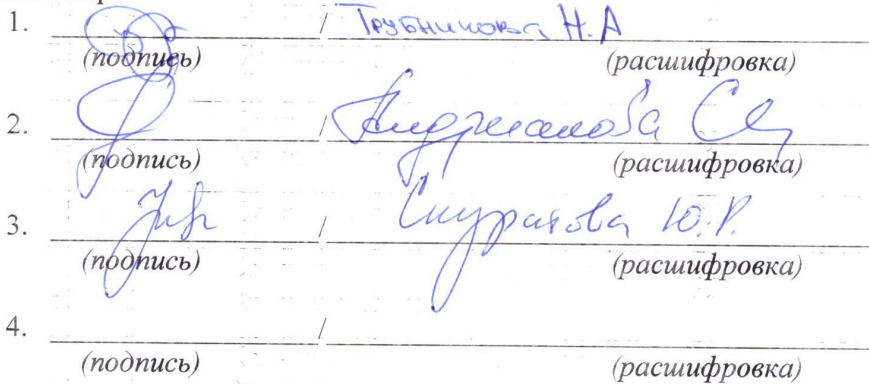 1. / Трубникова Н.А
(подпись) (расшифровка)
2. / Андрианова
(подпись) (расшифровка)
3. / Скуратова Ю.Р.
(подпись) (расшифровка)
4. /
(подпись) (расшифровка)